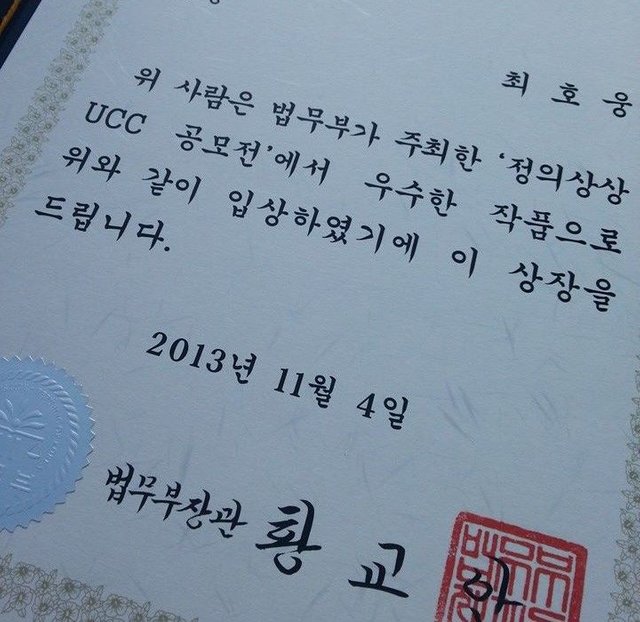 최 호 웅
위 사람은 법무부가 주최한 ‘정의상상
UCC 공모전’에서 우수한 작품으로
위와 같이 입상하였기에 이 상장을
드립니다.
2013년 11월 4일
법무부장관 황 교 안